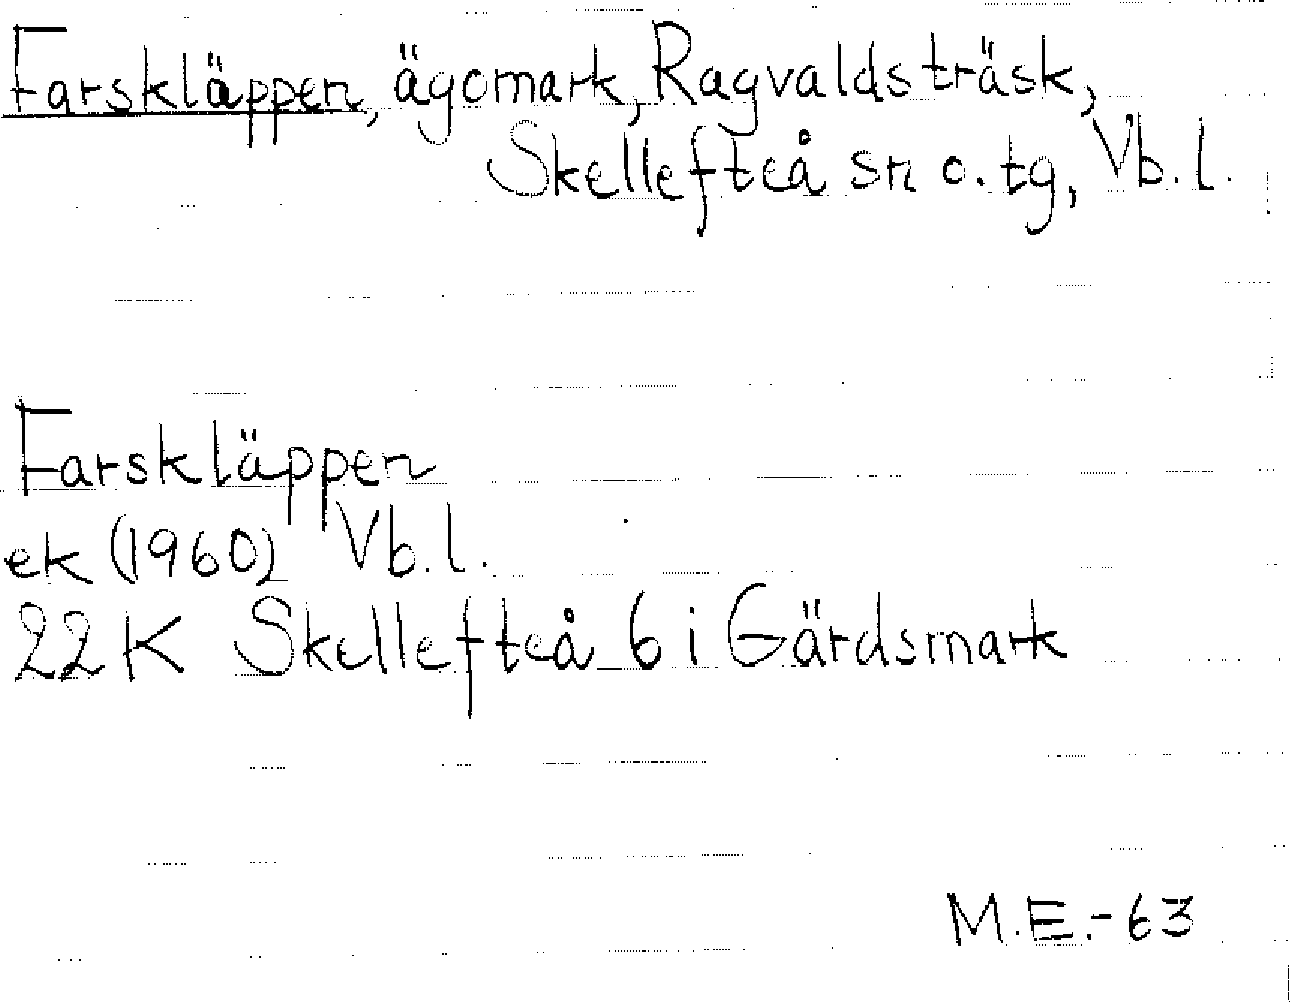 Farskläppen, ägomark, Ragvaldsträsk,
Skellefteå sn o. tg, Vb. l.
Farskläppen
ek (1960) Vb. l.
22 K Skellefteå 6 i Gärdsmark
M.E.-63